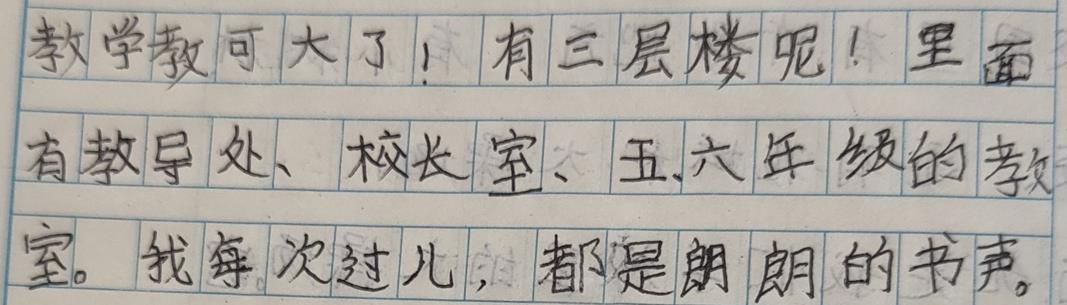 教学教可大了！有三层楼呢！里面
有教导处、校长室、五、六年级的教
室。我每次过儿，都是朗朗的书声。